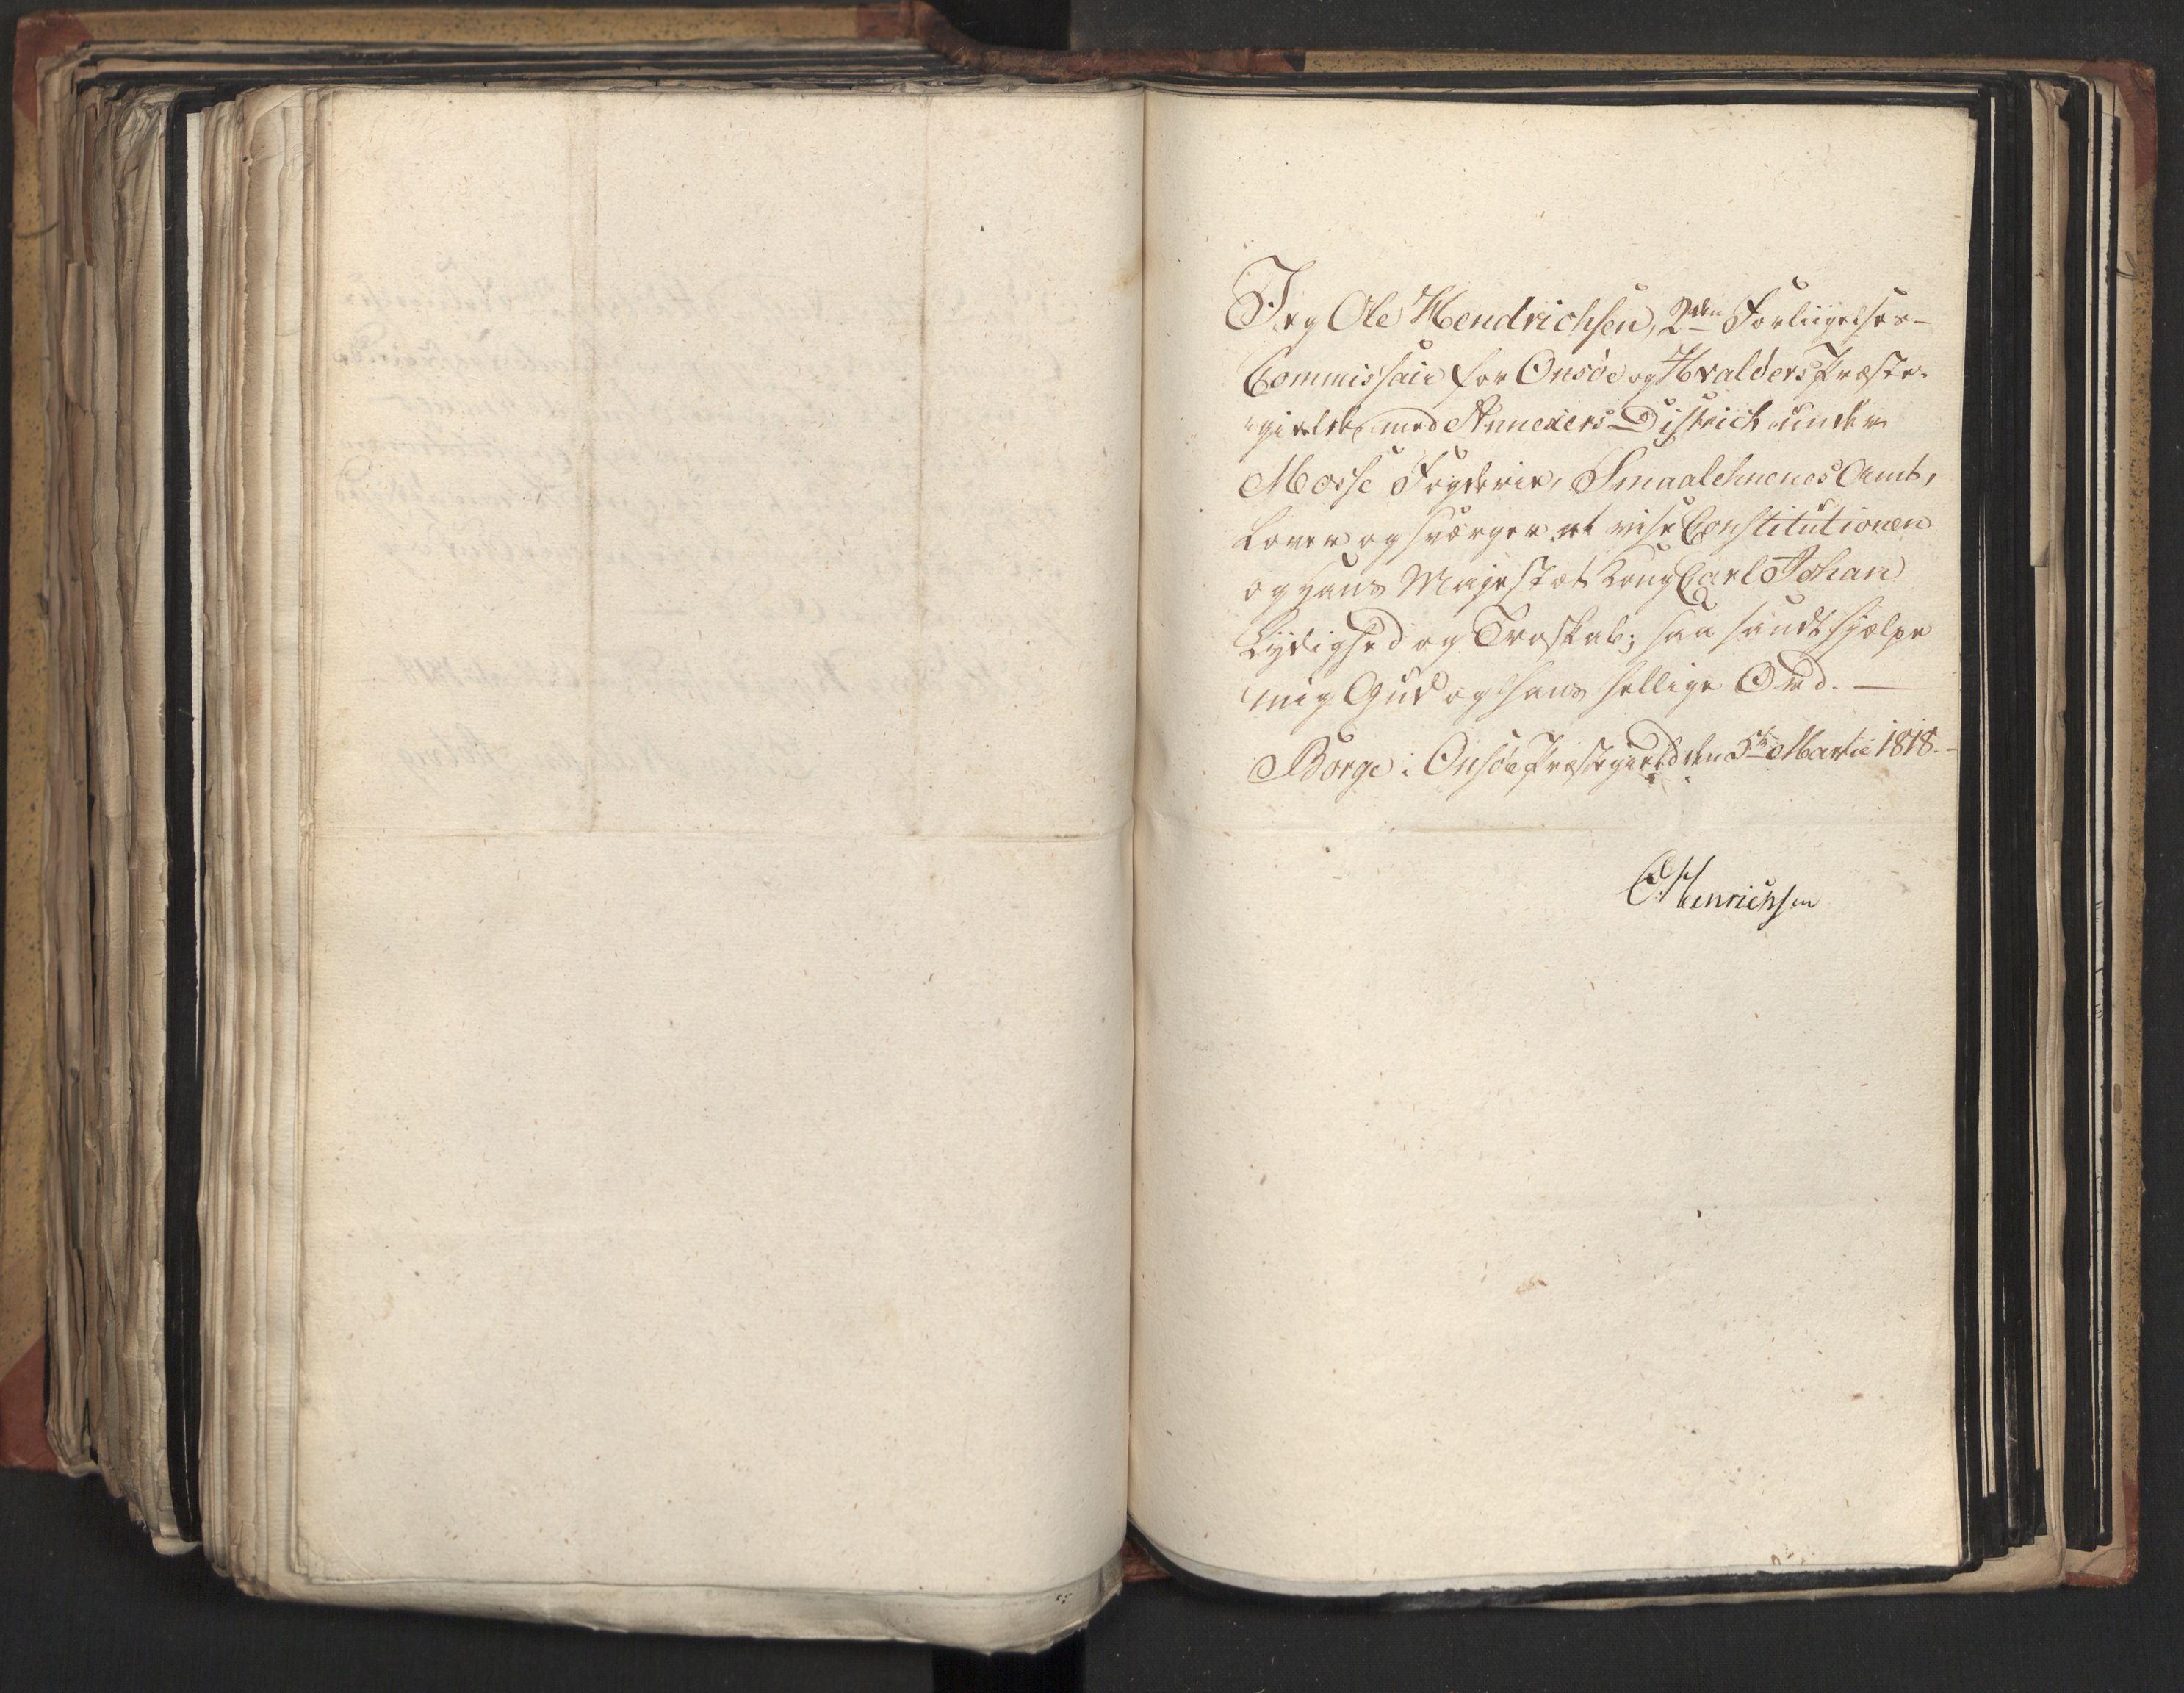 Jeg Ole Hendrichsen, 2den Forliigelses-
Commissair for Onsöe og Hvalöers Præste-
gield med Annexers District under
Mosse Fogderie, Smaalehnenes Amt,
Lover og sværger at vise Constitutionen
og Hans Majestæt Kong Carl Johan
Lydighed og Troskab; saa sandt hjelpe
mig Gud og hans hellige Ord. —
Borge i Onsöe Præstegield den 5te Martii 1818.-
O. Henrichsen